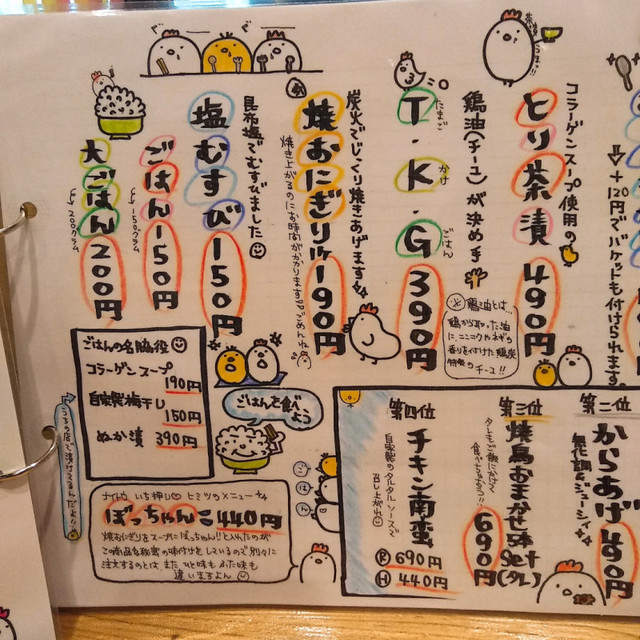 コラーゲンスープ使用の
とり茶漬 490円
+120円でバケットも付けられます。
鶏油(チーユ)が決めて
たまご かけ ごはん
T・K・G 390円
鶏油とは…
鶏から取った油
にニンニクやネギの
香りを付けた鶏炭
特徴のチーユ!!
炭火でじっくり焼きあげます
焼おにぎり 190円
焼き上がるのにお時間がかかります ごめんね
昆布塩でむすびました
塩むすび 150円
ごはん 150円
150グラム
大ごはん 200円
200グラム
ごはんの名脇役
コラーゲンスープ
190円
自家製梅干し
150円
ぬか漬 390円
うちの店で漬けてるんだ
ごはんを食べよう
ごはん
いち押し ヒミツのメニュー
ぼっちゃんこ 440円
焼おにぎりをスープにぼっちゃん!!と入れたのが
この商品 秘密の味付をしているので別々に
注文するのとは またひと味もふた味も
違いますよん
第二位
からあげ
無化調&ジューシィ
第三位
焼鳥おまかせ5本
set(タレ)
690円
タレもご飯にかけて
食べちゃおう!!
第四位
チキン南蛮
自家製のタルタルソースで
召し上がれ
R 690円
H 440円